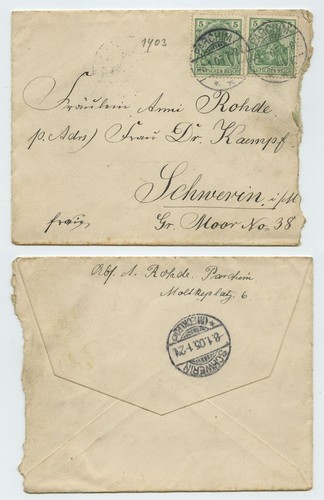 1903
5 5 5 5
DEUTSCHES REICH DEUTSCHES REICH
PARCHIM
PARCHIM
Fräulein Anni Rohde
p. Adr) Frau Dr. Kaempf
Schwerin i/M
fraig. Gr. Moor No 38
Abs. A. Rohde. Parchim
Moltkeplatz. 6
SCHWERIN
-8.1.05.1-2N
* (MECKLB)